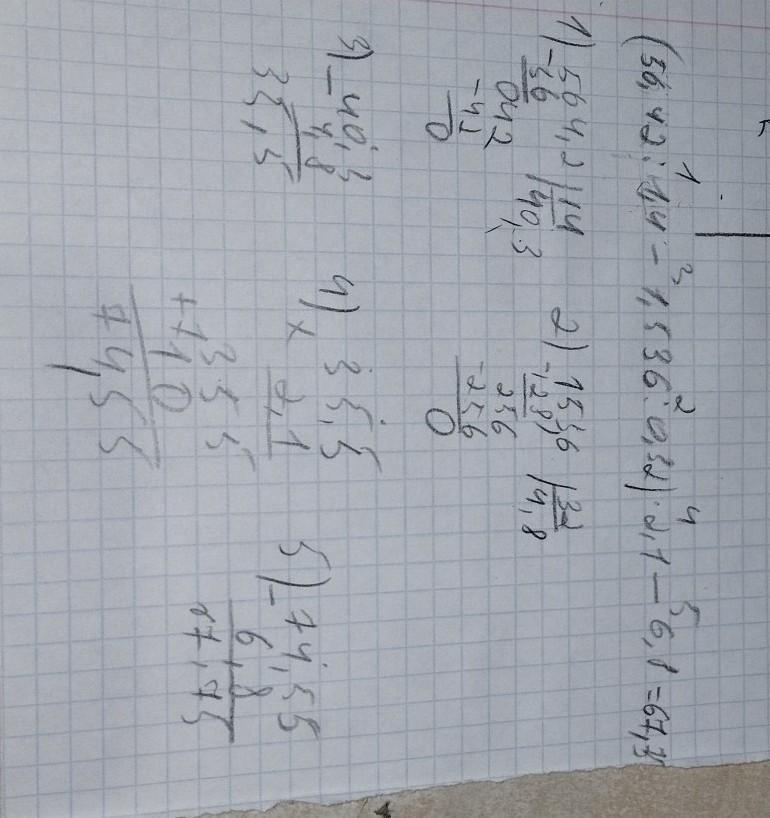 (56,42 : 1,4 - 1,536 : 0,32) · 2,1 - 6,8 = 67,7
1 3 2 4 5
1) 564,2 |14
-56 40,3
042
-42
0
2) 1536 |32
-128 4,8
256
-256
0
3) -40,3
4,8
35,5
4) × 35,5
2,1
355
+710
74,55
5) -74,55
6,8
67,75